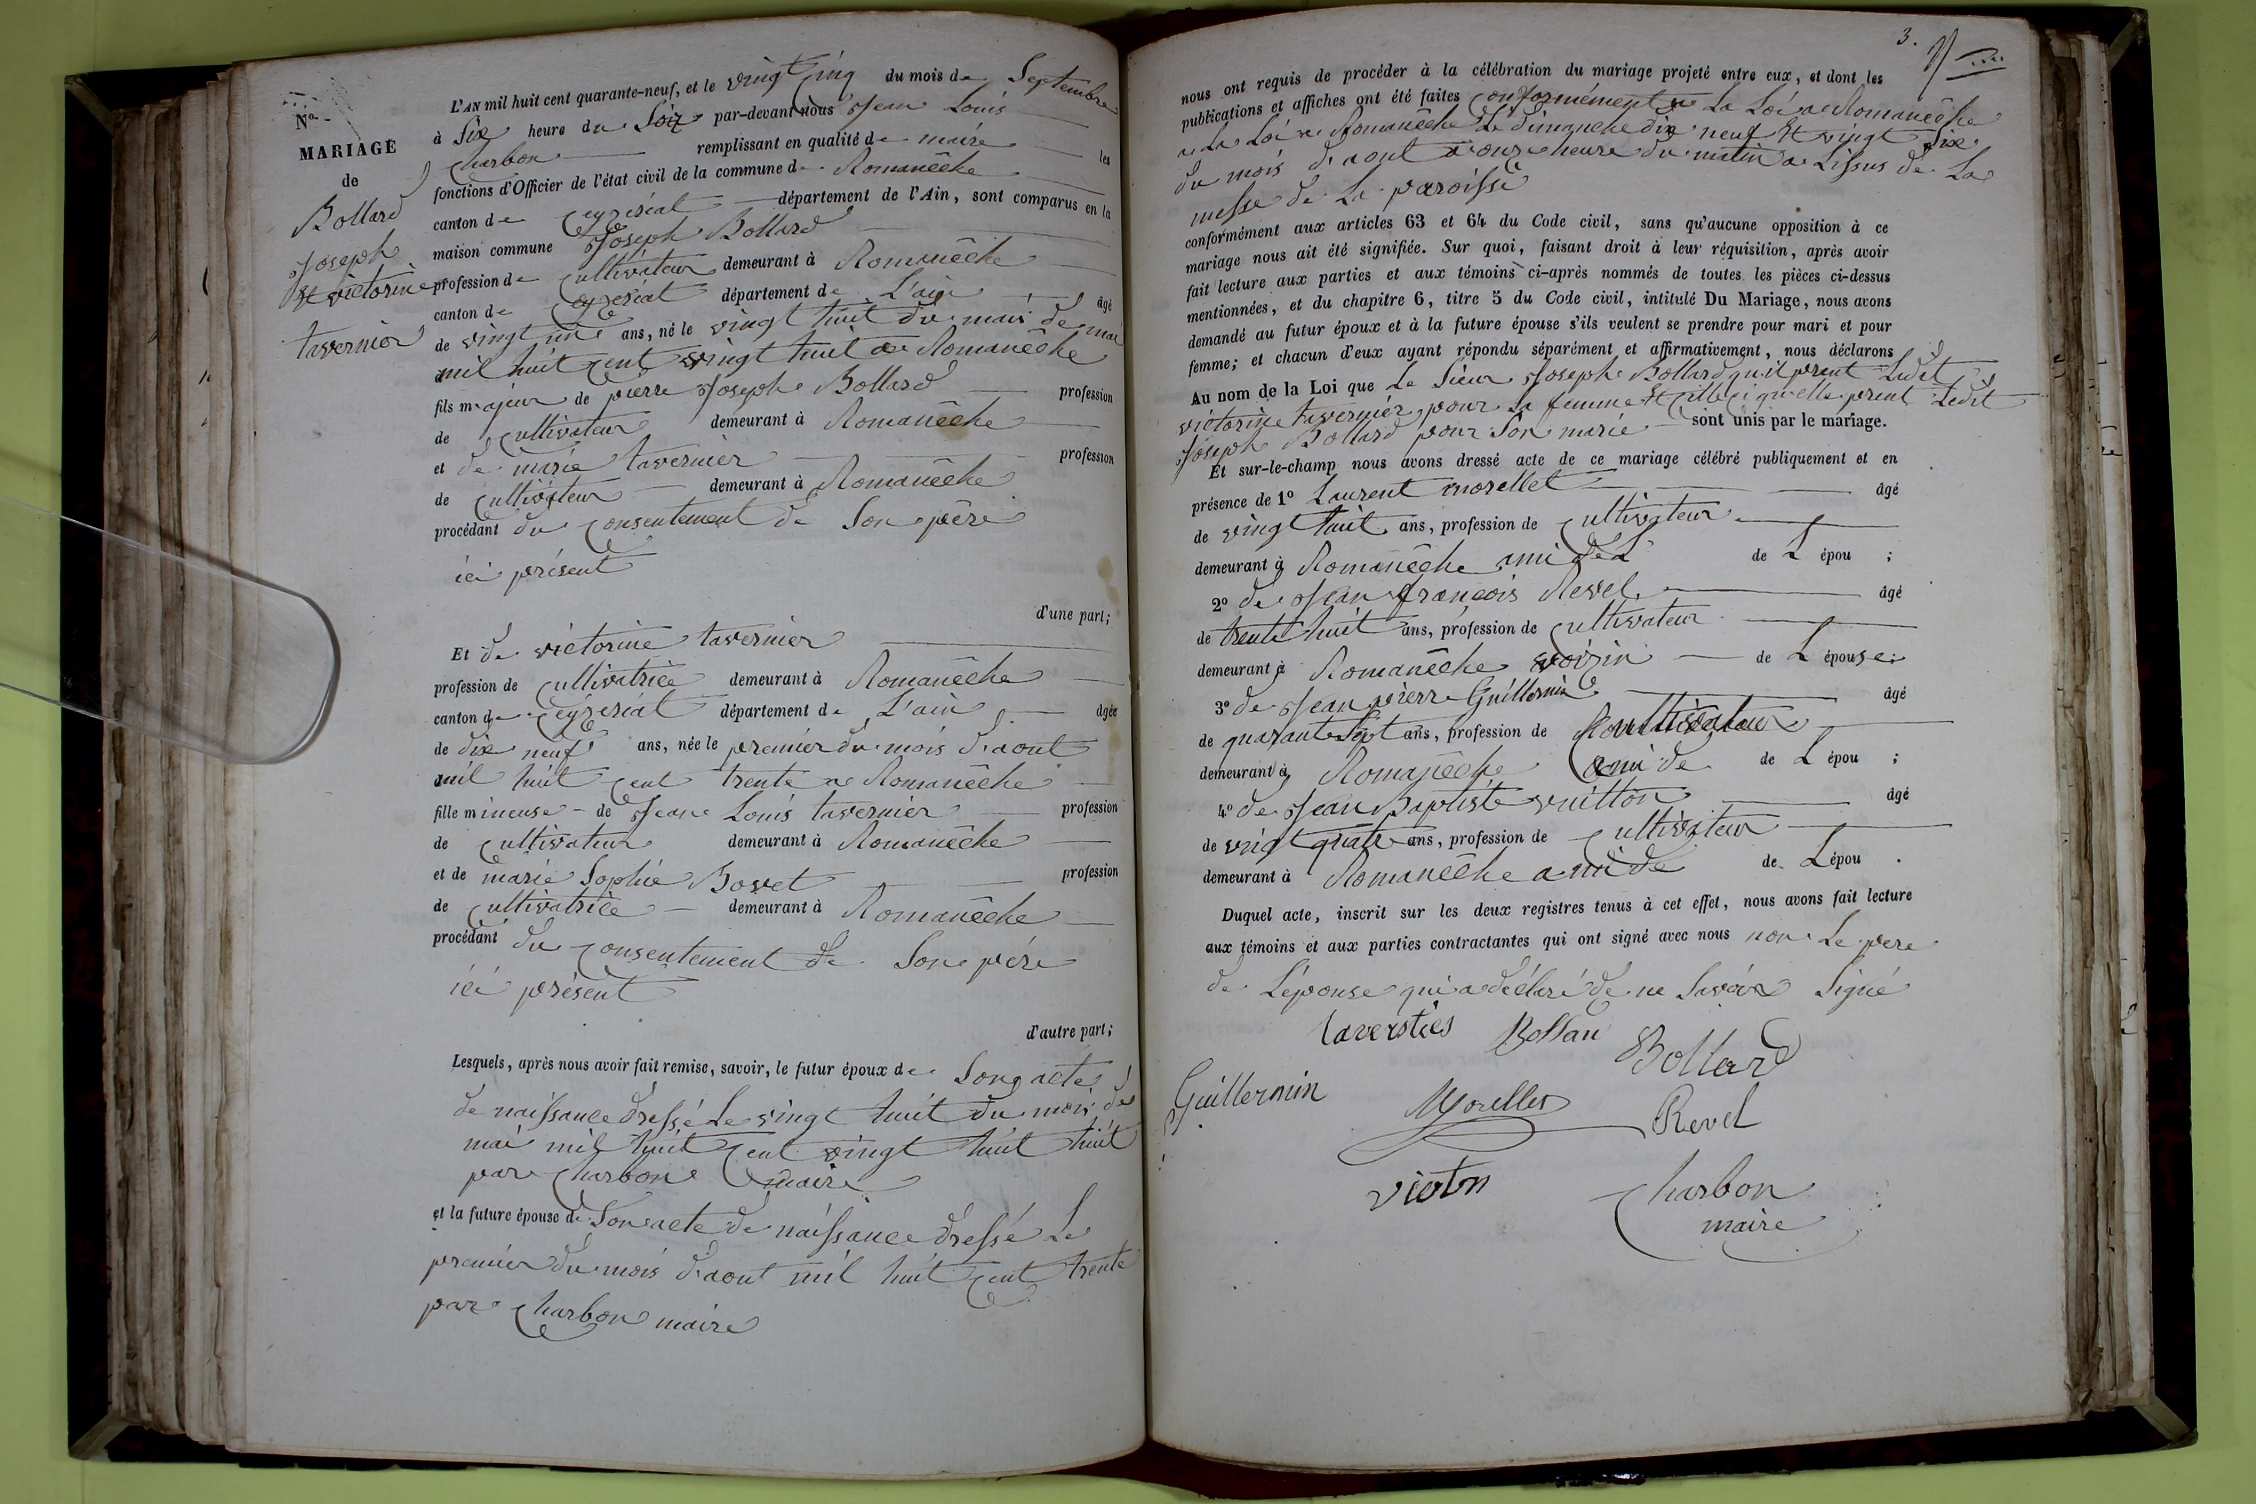 No
MARIAGE
de
Bollard
Joseph
et victorine
tavernier
L'AN mil huit cent quarante-neuf, et le vingt cinq du mois de Septembre
à Six heure du Soir par-devant nous Jean Louis
Charbon remplissant en qualité de maire les
fonctions d'Officier de l'état civil de la commune de Romanêche
canton de Ceyzeriat département de l'Ain, sont comparus en la
maison commune Joseph Bollard
profession de Cultivateur demeurant à Romanêche
canton de Ceyzeriat département de L'ain âgé
de vingt une ans, né le vingt huit du mois de mai
mil huit cent vingt huit a Romanêche
fils majeur de pierre Joseph Bollard profession
de Cultivateur demeurant à Romanêche
et de marie tavernier profession
de Cultivateur demeurant à Romanêche
procédant du Consentement de Son père
ici présent
d'une part;
Et de victorine tavernier
profession de Cultivatrice demeurant à Romanêche
canton de Ceyzeriat département de L'ain âgée
de dix neuf ans, née le premier du mois d'aout
mil huit cent trente a Romanêche
fille mineuse de Jean Louis tavernier profession
de Cultivateur demeurant à Romanêche
et de marie Sophie Bovet profession
de Cultivatrice demeurant à Romanêche
procédant du Consentement de Son père
ici présent
d'autre part;
Lesquels, après nous avoir fait remise, savoir, le futur époux de Son acte
de naissance dressé Le vingt huit du mois de
mai mil huit cent vingt huit huit
par Charbon maire
et la future épouse de Son acte de naissance dressé Le
premier du mois d'aout mil huit cent trente
par Charbon maire
3.
nous ont requis de procéder à la célébration du mariage projeté entre eux, et dont les
publications et affiches ont été faites Conformément a La Loi a Romanêche
a La Loi a Romanêche Le dimanche dix neuf Et vingt Six
du mois d'aout a onze heure du matin a Lissus de La
messe de La paroisse
conformément aux articles 63 et 64 du Code civil, sans qu'aucune opposition à ce
mariage nous ait été signifiée. Sur quoi, faisant droit à leur réquisition, après avoir
fait lecture aux parties et aux témoins ci-après nommés de toutes les pièces ci-dessus
mentionnées, et du chapitre 6, titre 5 du Code civil, intitulé Du Mariage, nous avons
demandé au futur époux et à la future épouse s'ils veulent se prendre pour mari et pour
femme; et chacun d'eux ayant répondu séparément et affirmativement, nous déclarons
Au nom de la Loi que Le Sieur Joseph Bollard qu'il prent Ladit
victorine tavernier pour Sa femme Et Celle Ci qu'elle prent Ledit
Joseph Bollard pour Son marie sont unis par le mariage.
Et sur-le-champ nous avons dressé acte de ce mariage célébré publiquement et en
présence de 1o Laurent morellet âgé
de vingt huit ans, profession de Cultivateur
demeurant à Romanêche ami de L de L épou ;
2o de Jean françois Revel âgé
de trente huit ans, profession de Cultivateur
demeurant à Romanêche voizin de L épouse;
3o de Jean pierre Guillermin âgé
de quarante Sept ans, profession de Cultivateur
demeurant à Romanêche ami de de L épou ;
4o de Jean Baptiste vuitton âgé
de vingt quatre ans, profession de Cultivateur
demeurant à Romanêche ami de de L épou .
Duquel acte, inscrit sur les deux registres tenus à cet effet, nous avons fait lecture
aux témoins et aux parties contractantes qui ont signé avec nous non Le père
de L'épouse qui a déclaré de ne Savoir Signé
Bollard
Guillermin Morellet Revel
Charbon
maire